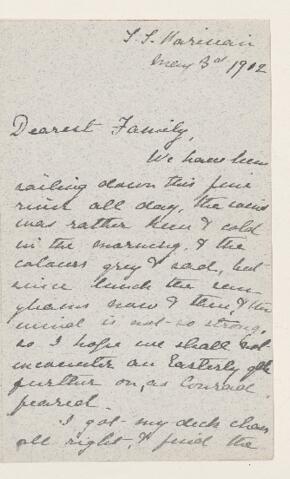 S.S. Parisian
May 3rd 1902
Dearest Family,
We have been
sailing down this fine
river all day, the wind
was rather keen & cold
in the morning, & the
colours grey & sad, but
since lunch the sun
gleams now & then, & the
wind is not so strong,
so I hope we shall not
encounter an Easterly gale
further on, as Conrad
feared.
I got my deck chair
all right, & find the